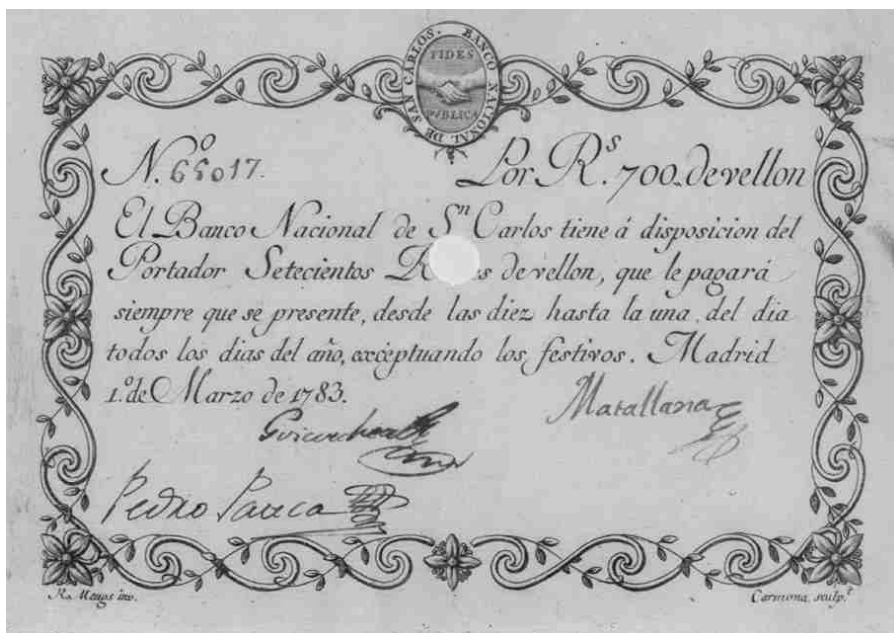 BANCO NACIONAL DE SAN CARLOS.
FIDES
PUBLICA
N.º 66017. Por R.s 700. de vellon
El Banco Nacional de Sn Carlos tiene á disposicion del
Portador Setecientos R s de vellon, que le pagará
siempre que se presente, desde las diez hasta la una, del dia
todos los dias del año, exceptuando los festivos. Madrid
1.º de Marzo de 1783.
Matallana
Pedro
R. Mengs inv.
Carmona. sculp.t